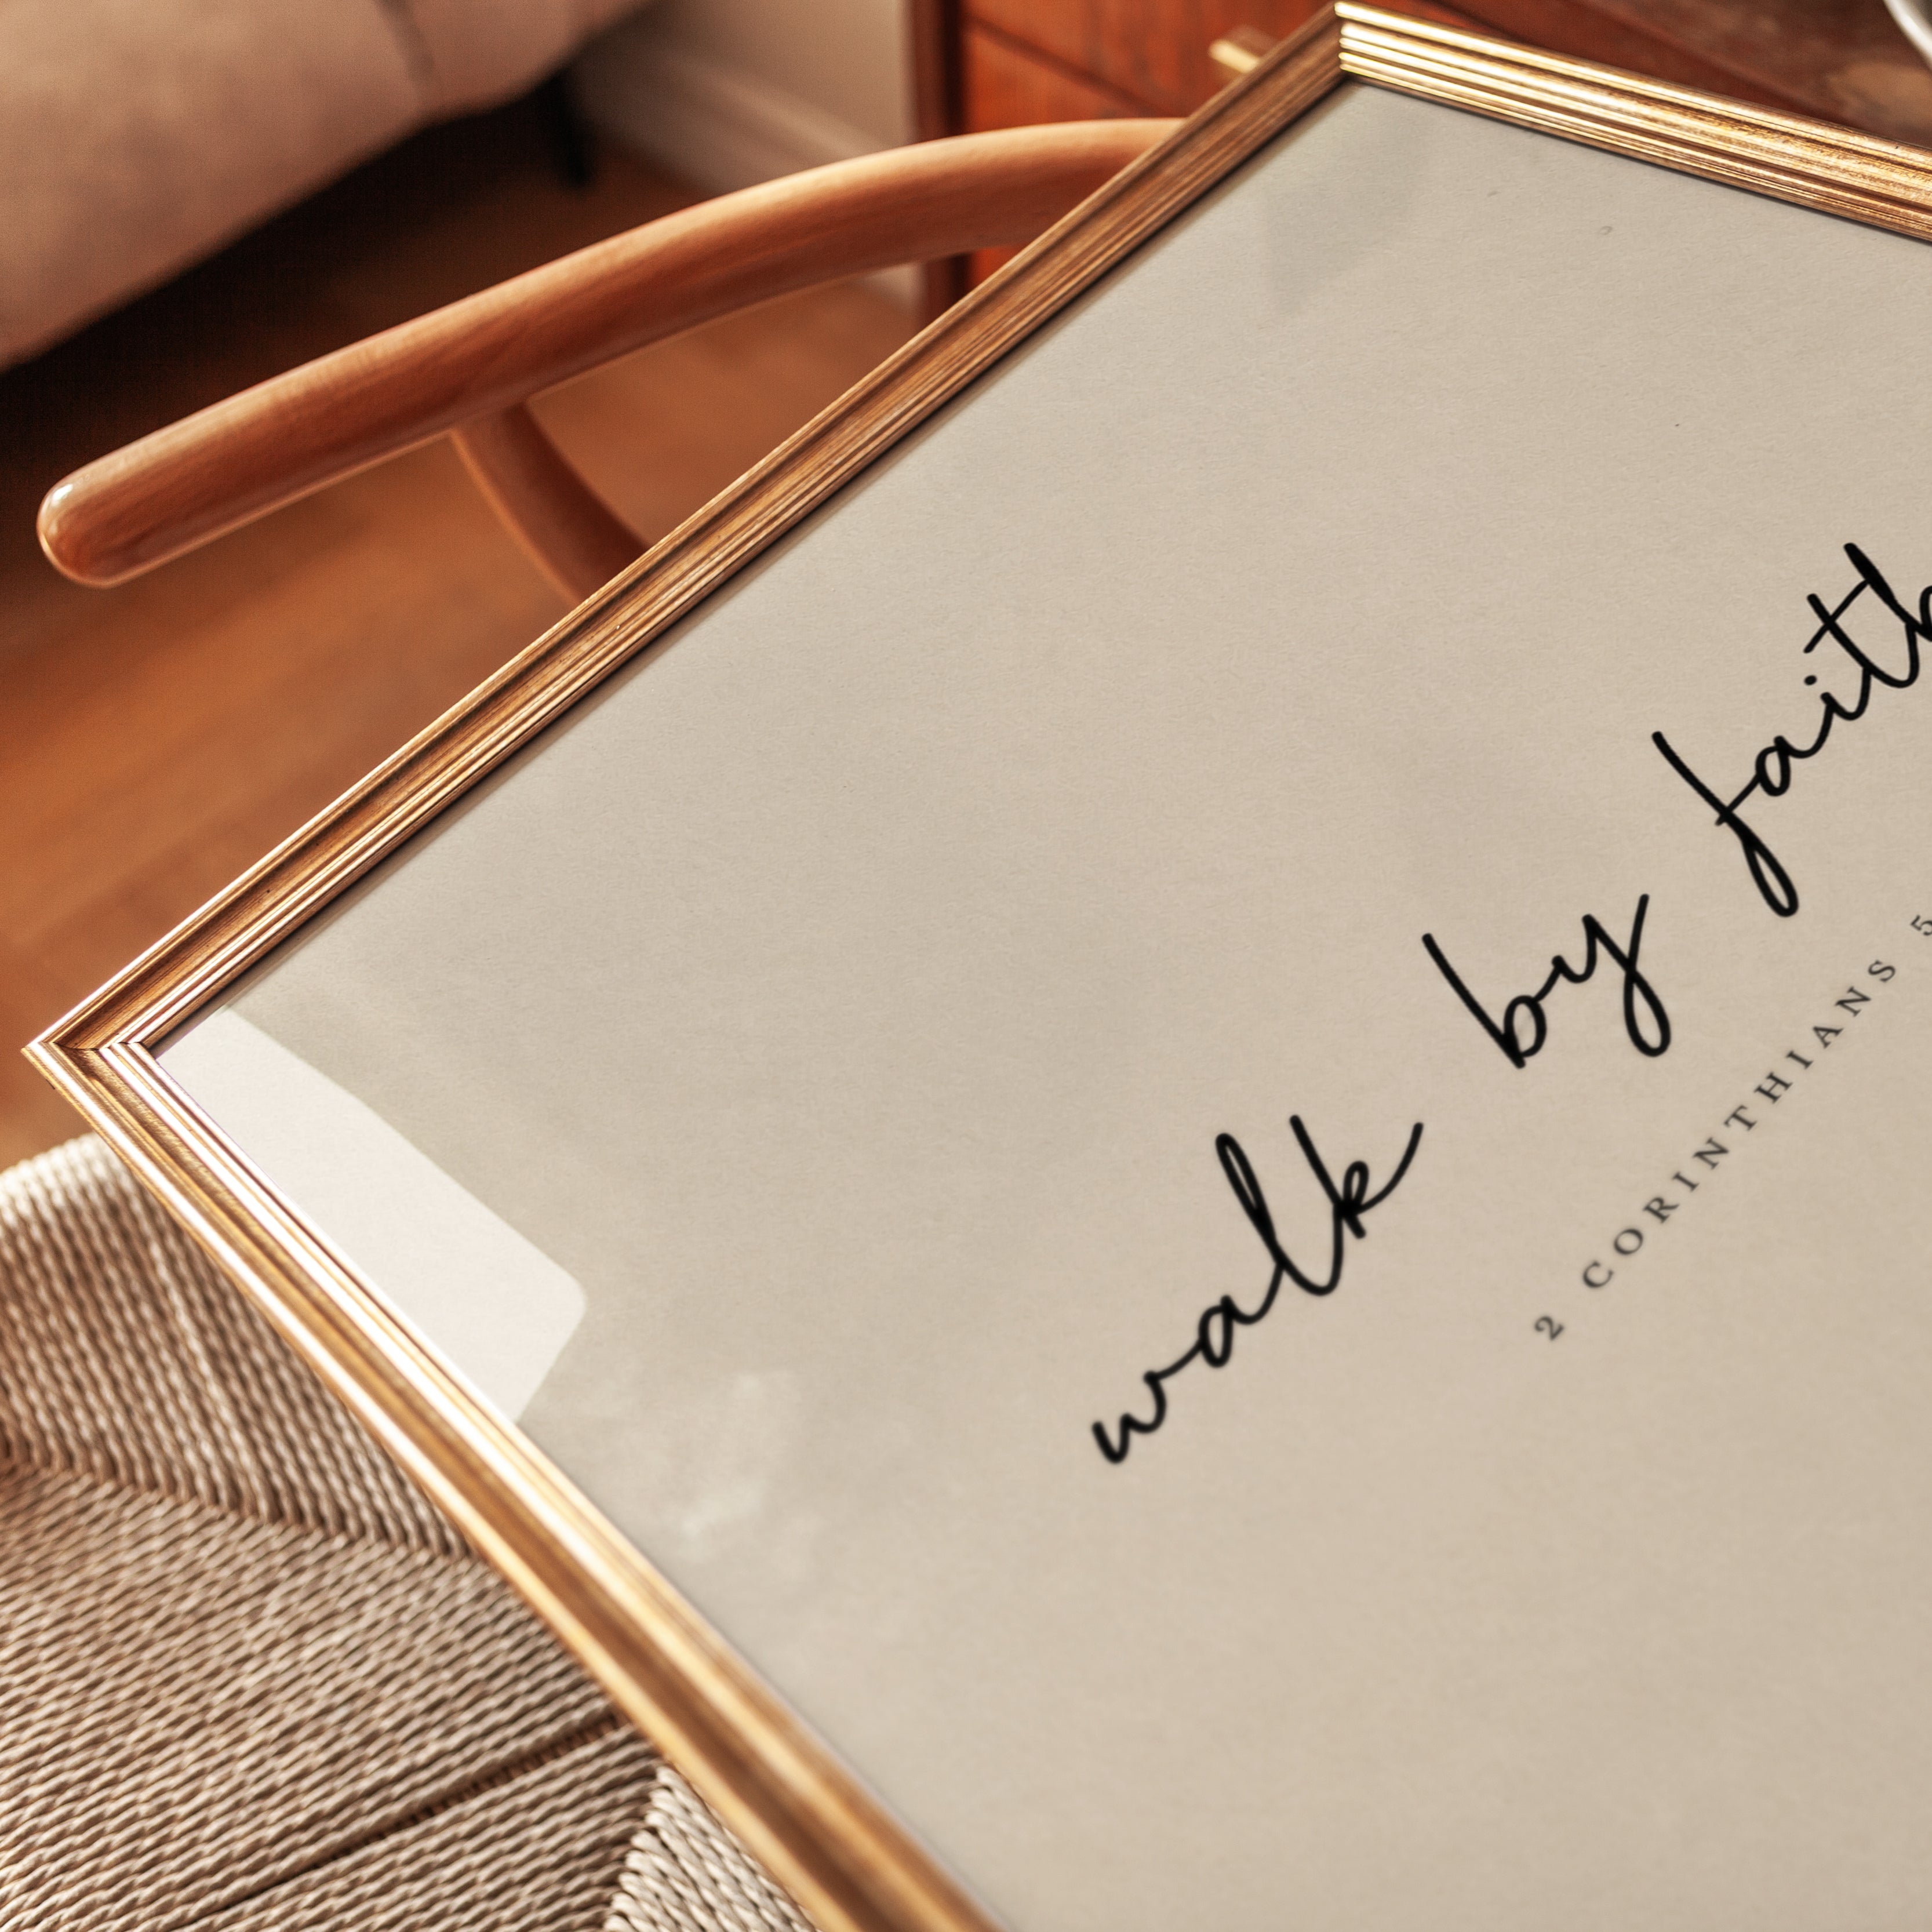 walk by faith
2 CORINTHIANS 5